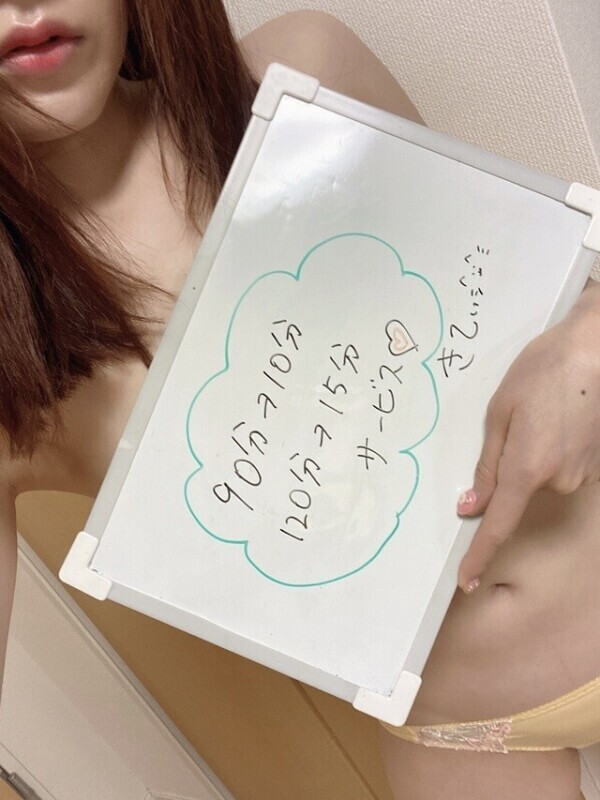 90分→10分
120分→15分
サービス♡
きてぃ